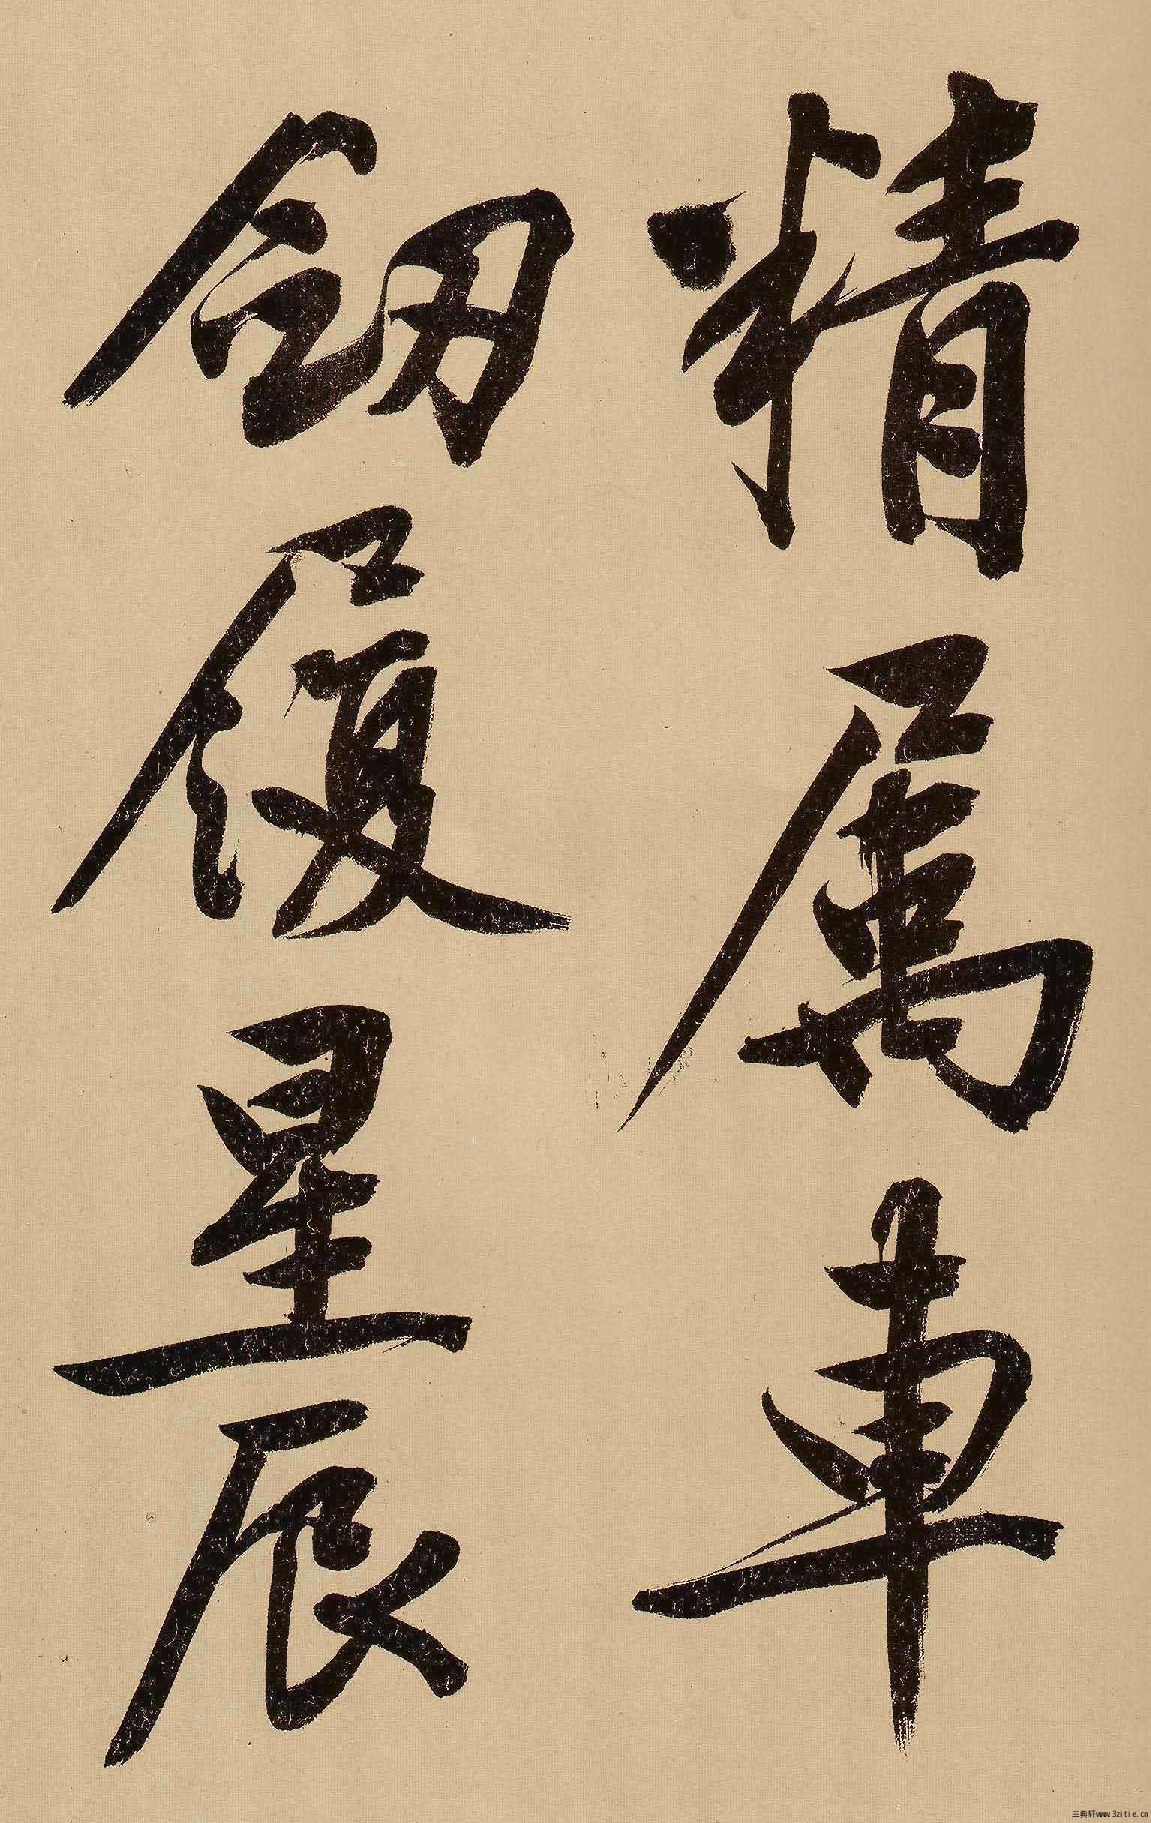 精屬車
劒履星辰
三典轩www.3zitie.cn